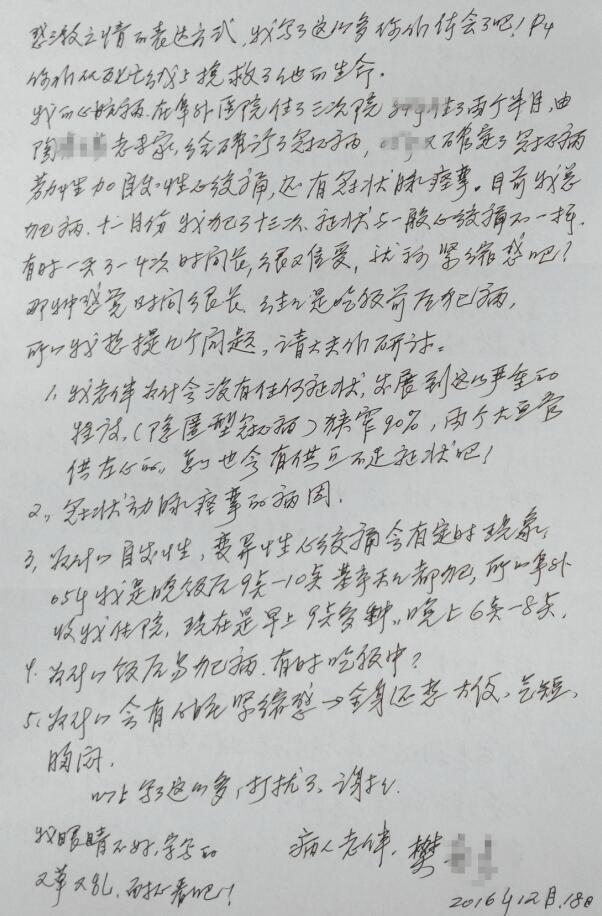 感激之情的表达方式，我写了这么多你们体会了吧！P4
你们从死亡线上挽救了他的生命。
我的心脏病，在阜外医院住了三次院 住了两个半月，由
陶 老专家，给确诊了冠心病， 又确定了冠心病
劳力性加自发性心绞痛，还有冠状脉痉挛。目前我总
犯病，十一月份我犯了十三次，症状与一般心绞痛不一样，
有时一天3－4次时间长，很难受，就称紧缩感吧？
那种感觉时间很长，往往是吃饭前后犯病，
所以我想提几个问题，请大夫们研讨。
1、我老伴为什会没有任何症状，发展到这么严重的
程度，（隐匿型冠心病）狭窄90%，两个大血管
供左心的，怎么也会有供血不足症状吧！
2、冠状动脉痉挛的病因。
3、为什么自发性，变异性心绞痛会有定时现象，
05年我是晚饭后9点－10点基本天天都犯，所以阜外
收我住院，现在是早上9点多钟，晚上6点－8点，
4、为什么饭后易犯病，有时吃饭中？
5、为什么会有 紧缩感→全身还想大便，气短，
胸闷，
以上写了这么多，打扰了，谢谢。
我眼睛不好，字写的
又草又乱，耐心看吧！
病人老伴，樊
2016年12月.18日